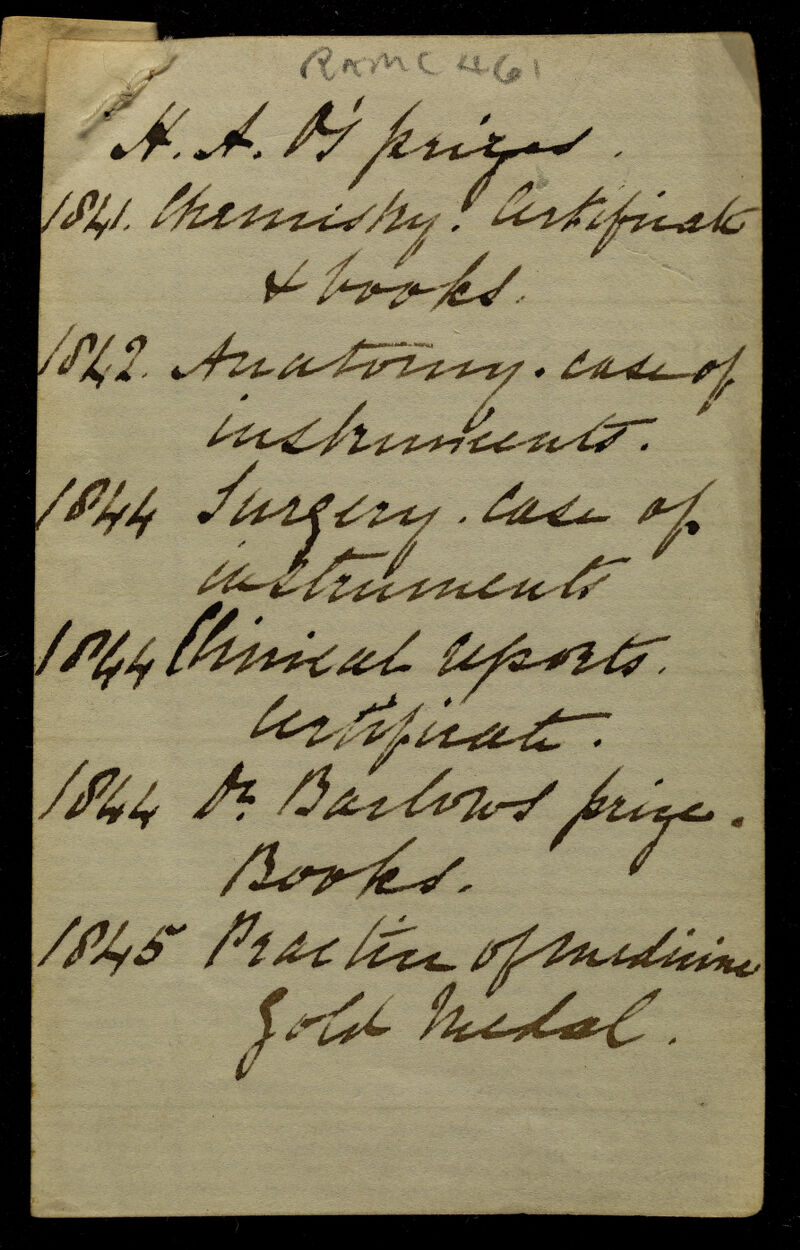 RAMC 461
H. A. O's prizes.
1841. Chemistry. Certificate
& books.
1842. Anatomy. case of
instruments.
1844 Surgery. Case of
instruments
1844 Clinical reports.
Certificate.
1844 Dr. Barlows prize.
Books.
1845 Practice of medicine
Gold Medal.